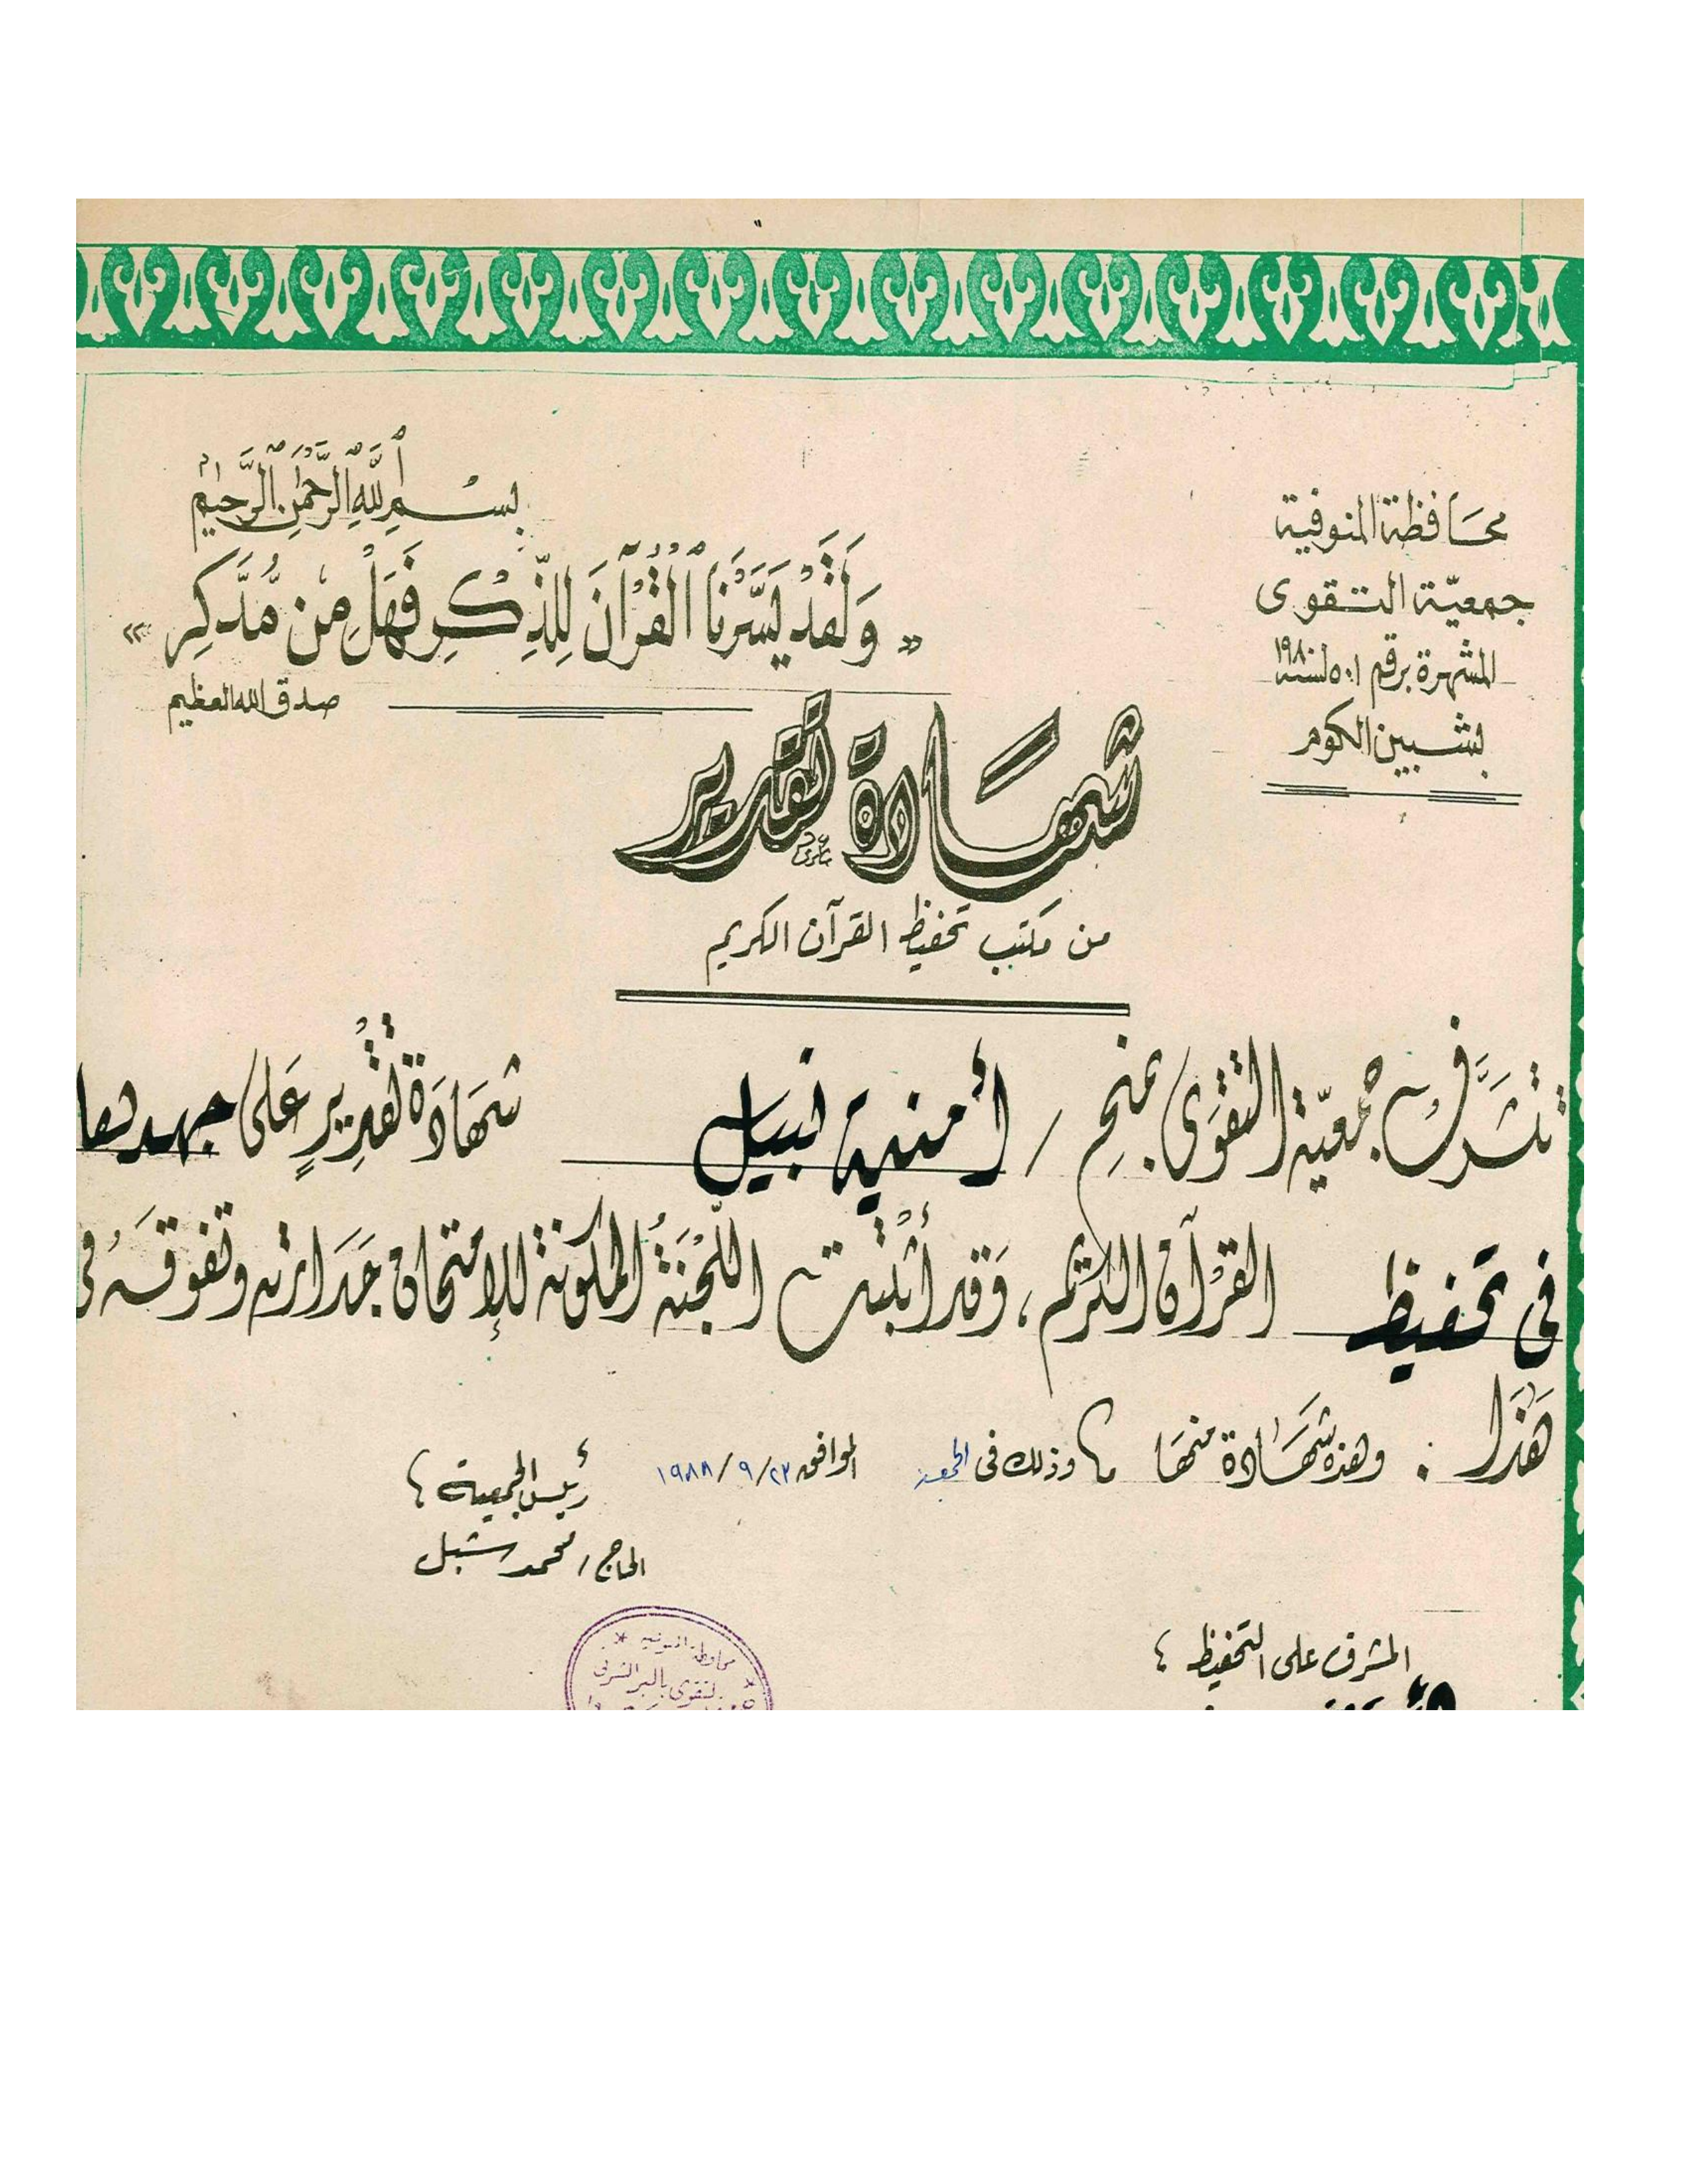 محافظة المنوفية
جمعيّة التقوى
المشهرة برقم ٥٠١ لسنة ١٩٨٠
بشبين الكوم
بسم الله الرحمن الرحيم
« وَلَقَدْ يَسَّرْنَا الْقُرْآنَ لِلذِّكْرِ فَهَلْ مِنْ مُّدَّكِرِ »
صدق الله العظيم
شهادة تقدير
من مكتب تحفيظ القرآن الكريم
تتشرَّف جمعيّة التقوَى بمنحِ / أمنية نبيل شهَادَة تقْدِيرٍ عَلى جهدها
فى تحفيظ القرْآن الكريم ، وَقد أثْبتت اللّجْنَةُ المكونة للإمتحان جَدَارته وتفوقَهُ فى
هَذَا : وهذه شهَادة منهَا وذلك فى الجمعة الموافق ٢٣/٩/١٩٨٨
رئيس الجمعية ؛
الحاج / محمد شبل
المشرف على التحفيظ ؛
محافظة المنوفية
التقوى بالبر الشرقى